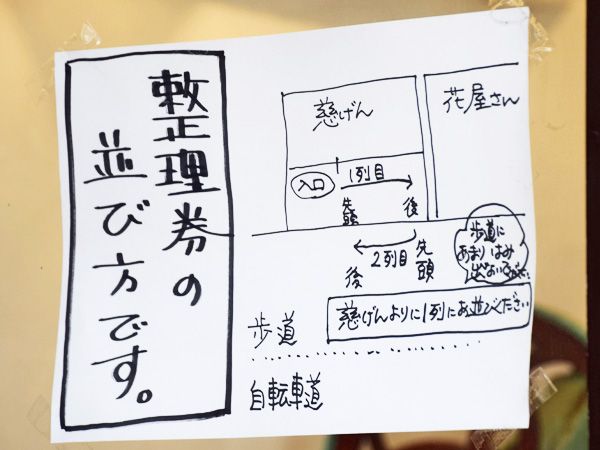 整理券の
並び方です。
慈げん
花屋さん
入口
1列目
先頭
後
先頭
2列目
後
歩道に
あまりはみ
出ない
慈げんよりに1列にお並びください
歩道
自転車道